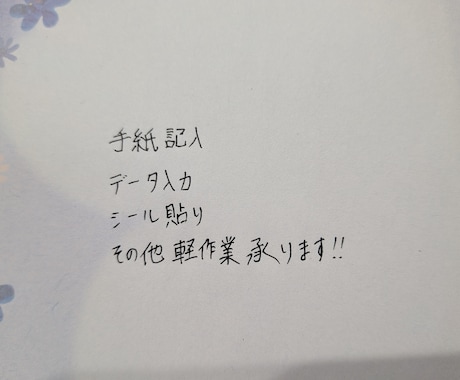 手紙記入
データ入力
シール貼り
その他軽作業承ります!!